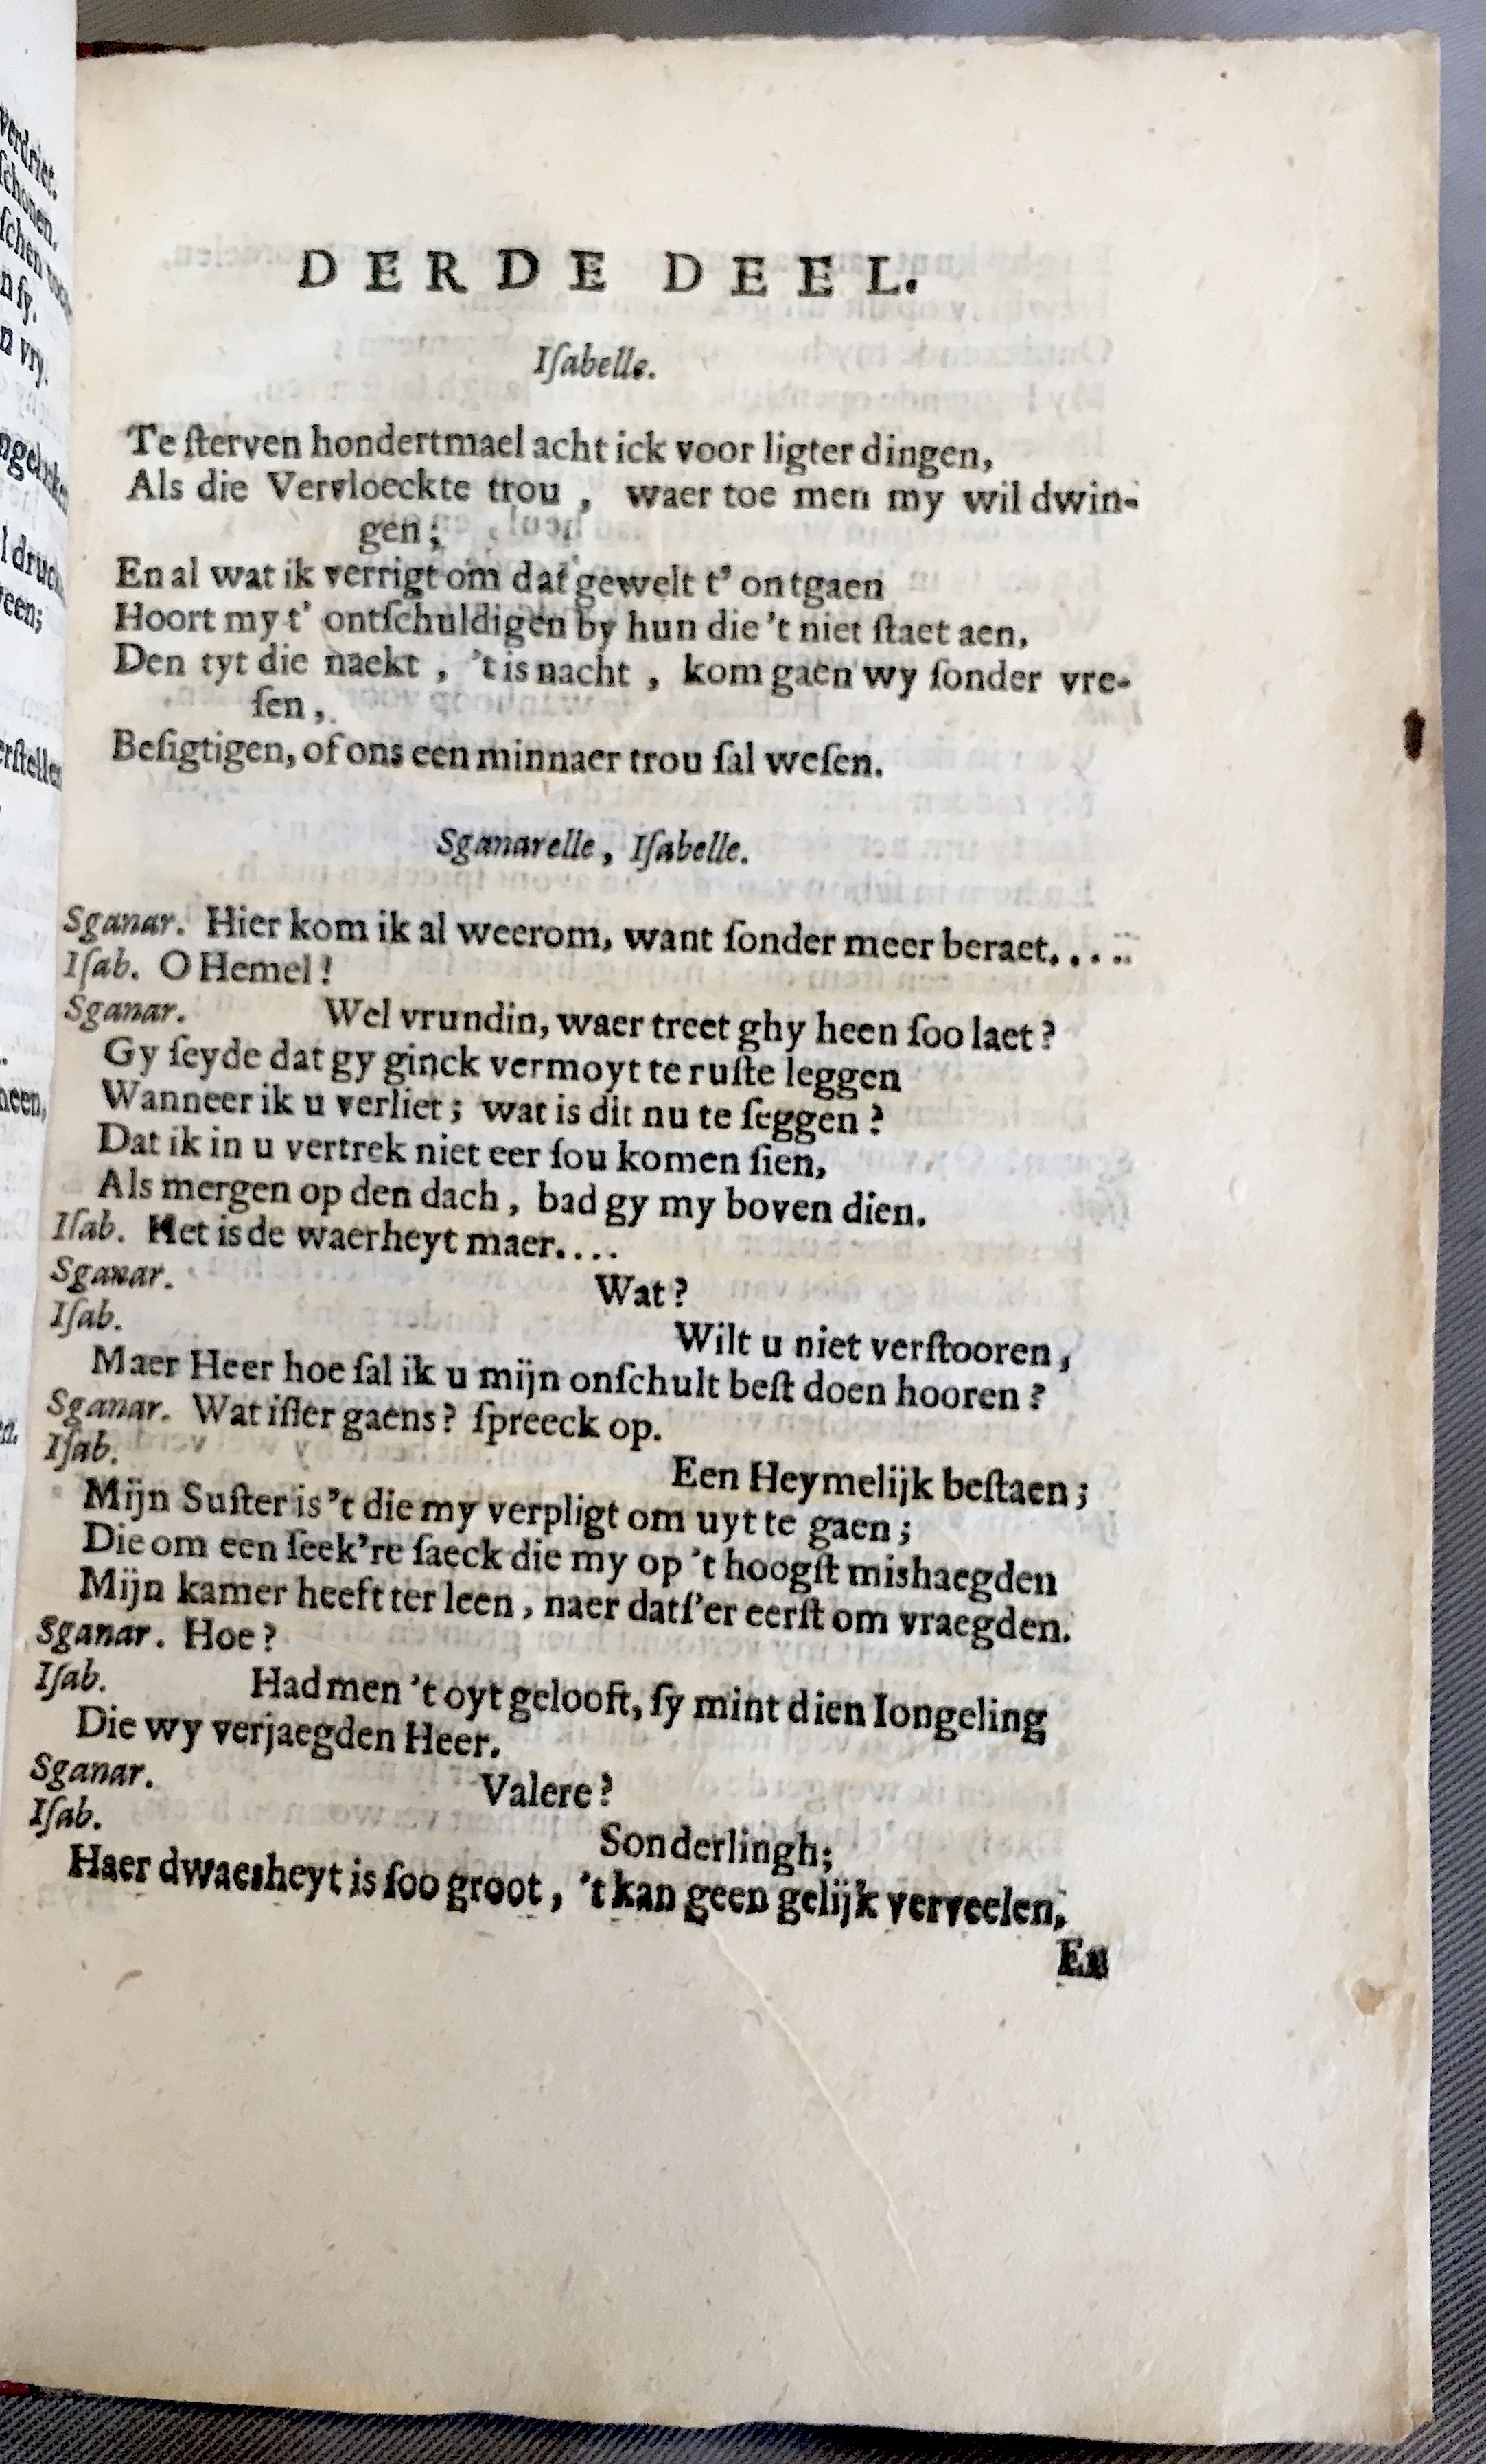 verdriet.
ſchonen.
ſchen
n ſy.
n vry.
l druc
veen;
erſtellen
heen,
en.
DERDE DEEL.
Iſabelle.
Te ſterven hondertmael acht ick voor ligter dingen,
Als die Vervloeckte trou , waer toe men my wil dwin-
gen;
En al wat ik verrigt om dat gewelt t' ontgaen
Hoort my t' ontſchuldigen by hun die 't niet ſtaet aen,
Den tyt die naekt , 't is nacht , kom gaen wy ſonder vre-
ſen ,
Beſigtigen, of ons een minnaer trou ſal weſen.
Sganarelle, Iſabelle.
Sganar. Hier kom ik al weerom, want ſonder meer beraet.....
Iſab. O Hemel!
Sganar. Wel vrundin, waer treet ghy heen ſoo laet?
Gy ſeyde dat gy ginck vermoyt te ruſte leggen
Wanneer ik u verliet; wat is dit nu te ſeggen?
Dat ik in u vertrek niet eer ſou komen ſien,
Als mergen op den dach, bad gy my boven dien.
Iſab. Het is de waerheyt maer....
Sganar. Wat?
Iſab. Wilt u niet verſtooren,
Maer Heer hoe ſal ik u mijn onſchult beſt doen hooren?
Sganar. Wat iſſer gaens? ſpreeck op.
Iſab. Een Heymelijk beſtaen;
Mijn Suſter is 't die my verpligt om uyt te gaen;
Die om een ſeek're ſaeck die my op 't hoogſt mishaegden
Mijn kamer heeft ter leen, naer datſ'er eerſt om vraegden.
Sganar. Hoe?
Iſab. Had men 't oyt gelooft, ſy mint dien Iongeling
Die wy verjaegden Heer.
Sganar. Valere?
Iſab. Sonderlingh;
Haer dwaesheyt is ſoo groot, 't kan geen gelijk verveelen,
En